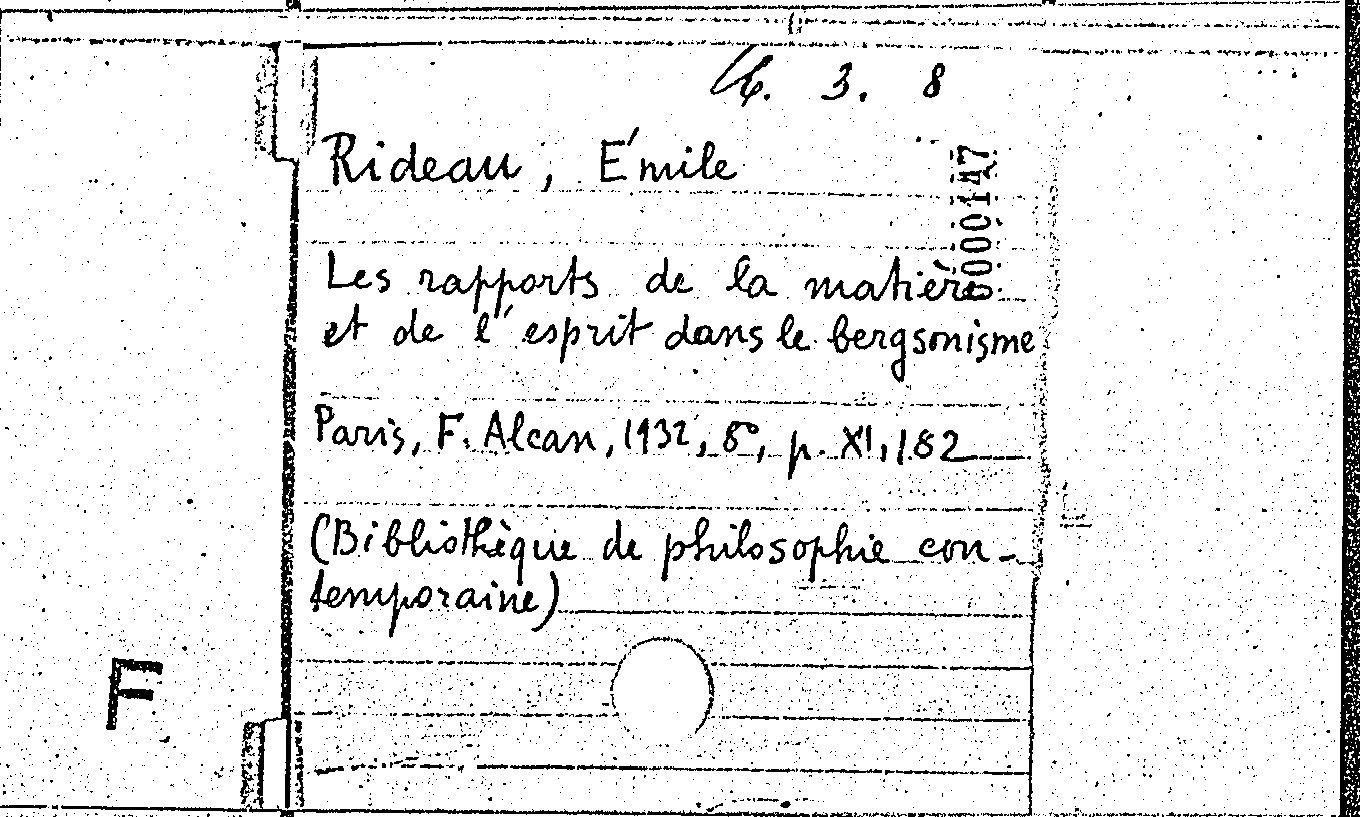 6. 3. 8
Rideau, Émile
0000147
Les rapports de la matière
et de l'esprit dans le bergsonisme
Paris, F. Alcan, 1932, 8°, p. XI, 182
(Bibliothèque de philosophie con-
temporaine)
F